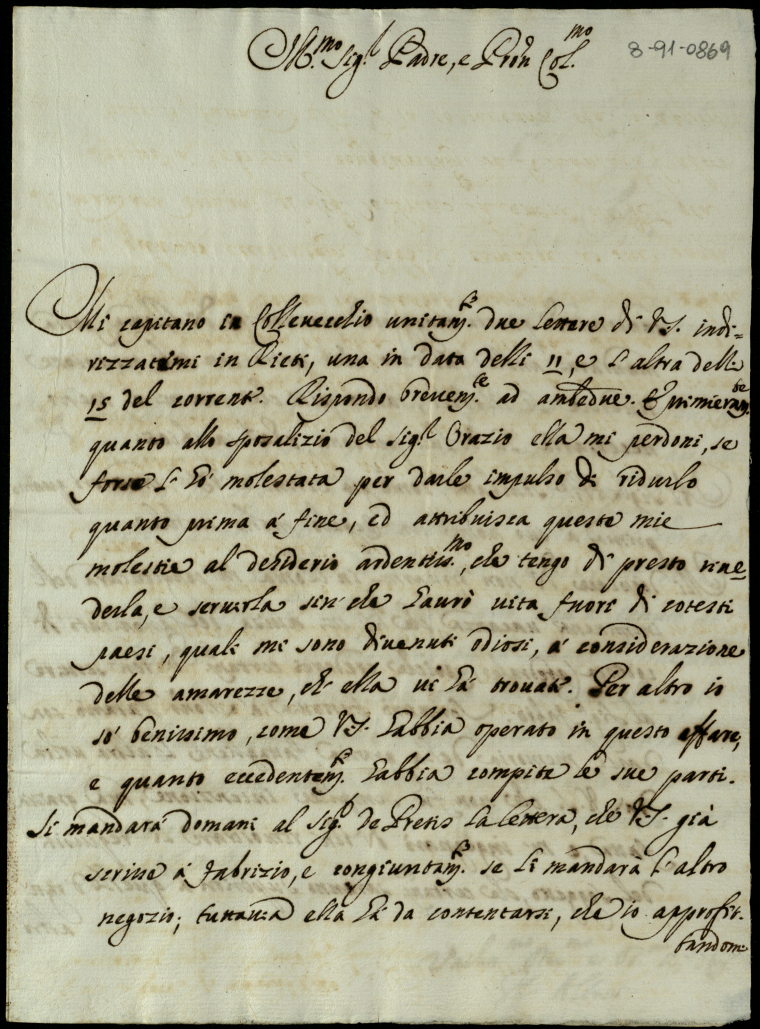 Ill.mo Sig.r Padre, e Pron Col.mo
8-91-0869
Mi capitano in Collevecchio unitam.te due lettere di V.S. indi=
rizzatemi in Rieti, una in data delli 11, e l'altra delli
15 del corrente. Rispondo brevem.te ad ambedue. E primieram.te
quanto allo sposalizio del Sig.r Orazio ella mi perdoni, se
forse l'hò molestata per darle impulso di ridurlo
quanto prima à fine, ed attribuisca queste mie
molestie al desiderio ardentiss.mo, che tengo di presto rive
derla, e servirla sin che haurò vita fuori di cotesti
paesi, quali mi sono divenuti odiosi, à considerazione
delle amarezze, ch'ella vi hà trovate. Per altro io
sò benissimo, come V.S. habbia operato in questo affare,
e quanto eccedentem.te habbia compite le sue parti.
Si mandarà domani al Sig.r de Pretis la lettera, che V.S. già
scrisse à Fabrizio, e congiuntam.te se li mandarà l'altro
negozio; tuttavia ella hà da contentarsi, che io approfit-
tandomi